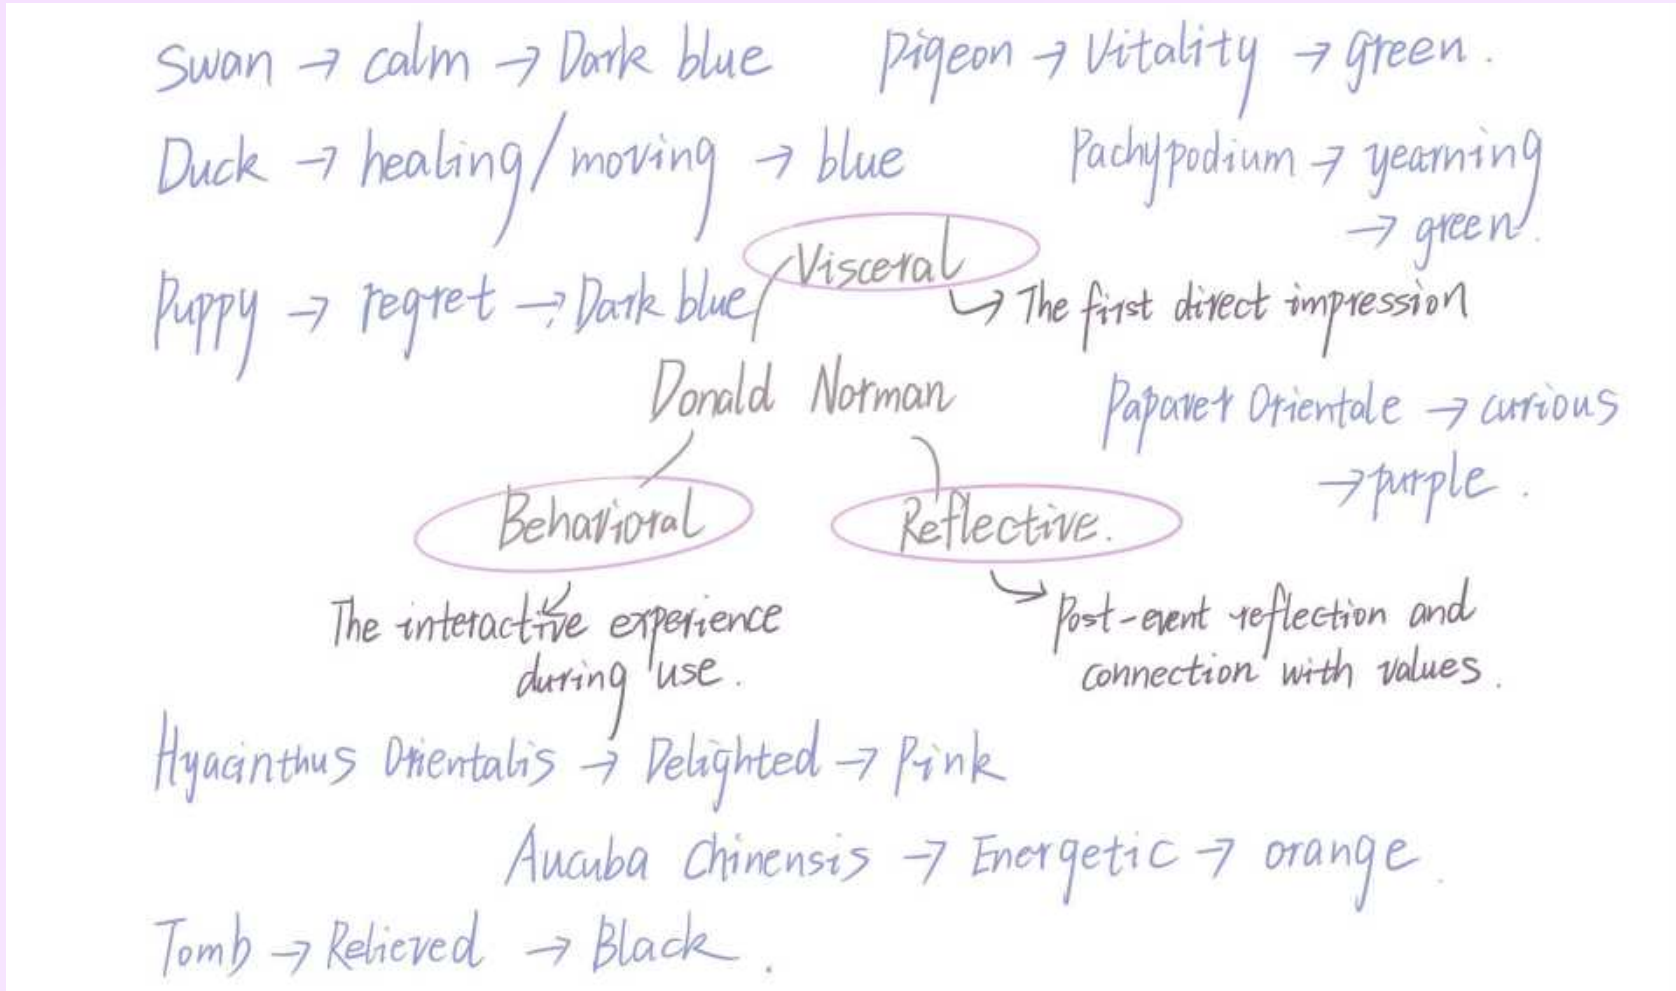 Swan → calm → Dark blue
Pigeon → Vitality → green.
Duck → healing/moving → blue
Pachypodium → yearning
→ green.
Visceral
Puppy → regret → Dark blue
→ The first direct impression
Donald Norman
Papaver Orientale → curious
→ purple.
Behavioral
Reflective.
The interactive experience
during use.
Post-event reflection and
connection with values.
Hyacinthus Orientalis → Delighted → Pink
Aucuba Chinensis → Energetic → orange.
Tomb → Relieved → Black.